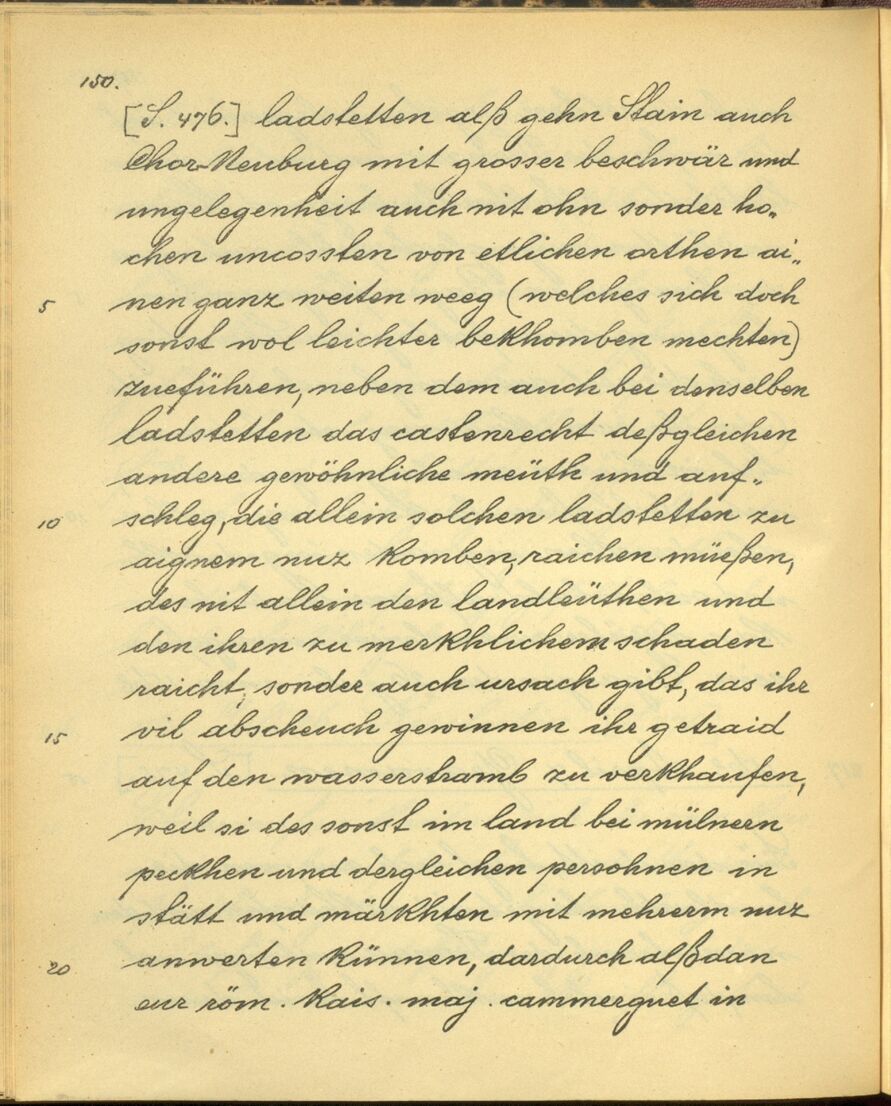 150.
[S. 476.] ladstetten alß gehn Stain auch
Chor-Neuburg mit grosser beschwär und
ungelegenheit auch nit ohn sonder ho„
chen uncossten von etlichen orthen ai„
5 nen ganz weiten weeg (welches sich doch
sonst wol leichter bekhomben mechten)
zueführen, neben dem auch bei denselben
ladstetten das castenrecht deßgleichen
andere gewöhnliche meüth und auf„
10 schleg, die allein solchen ladstetten zu
aignem nuz komben, raichen müeßen,
des nit allein den landleüthen und
den ihren zu merkhlichem schaden
raicht, sonder auch ursach gibt, das ihr
15 vil abscheuch gewinnen ihr getraid
auf den wasserstramb zu verkhaufen,
weil si des sonst im land bei mülnern
peckhen und dergleichen persohnen in
stätt und märkhten mit mehrerm nuz
20 anwerten künnen, dardurch alßdan
eur röm. kais. maj. cammerguet in